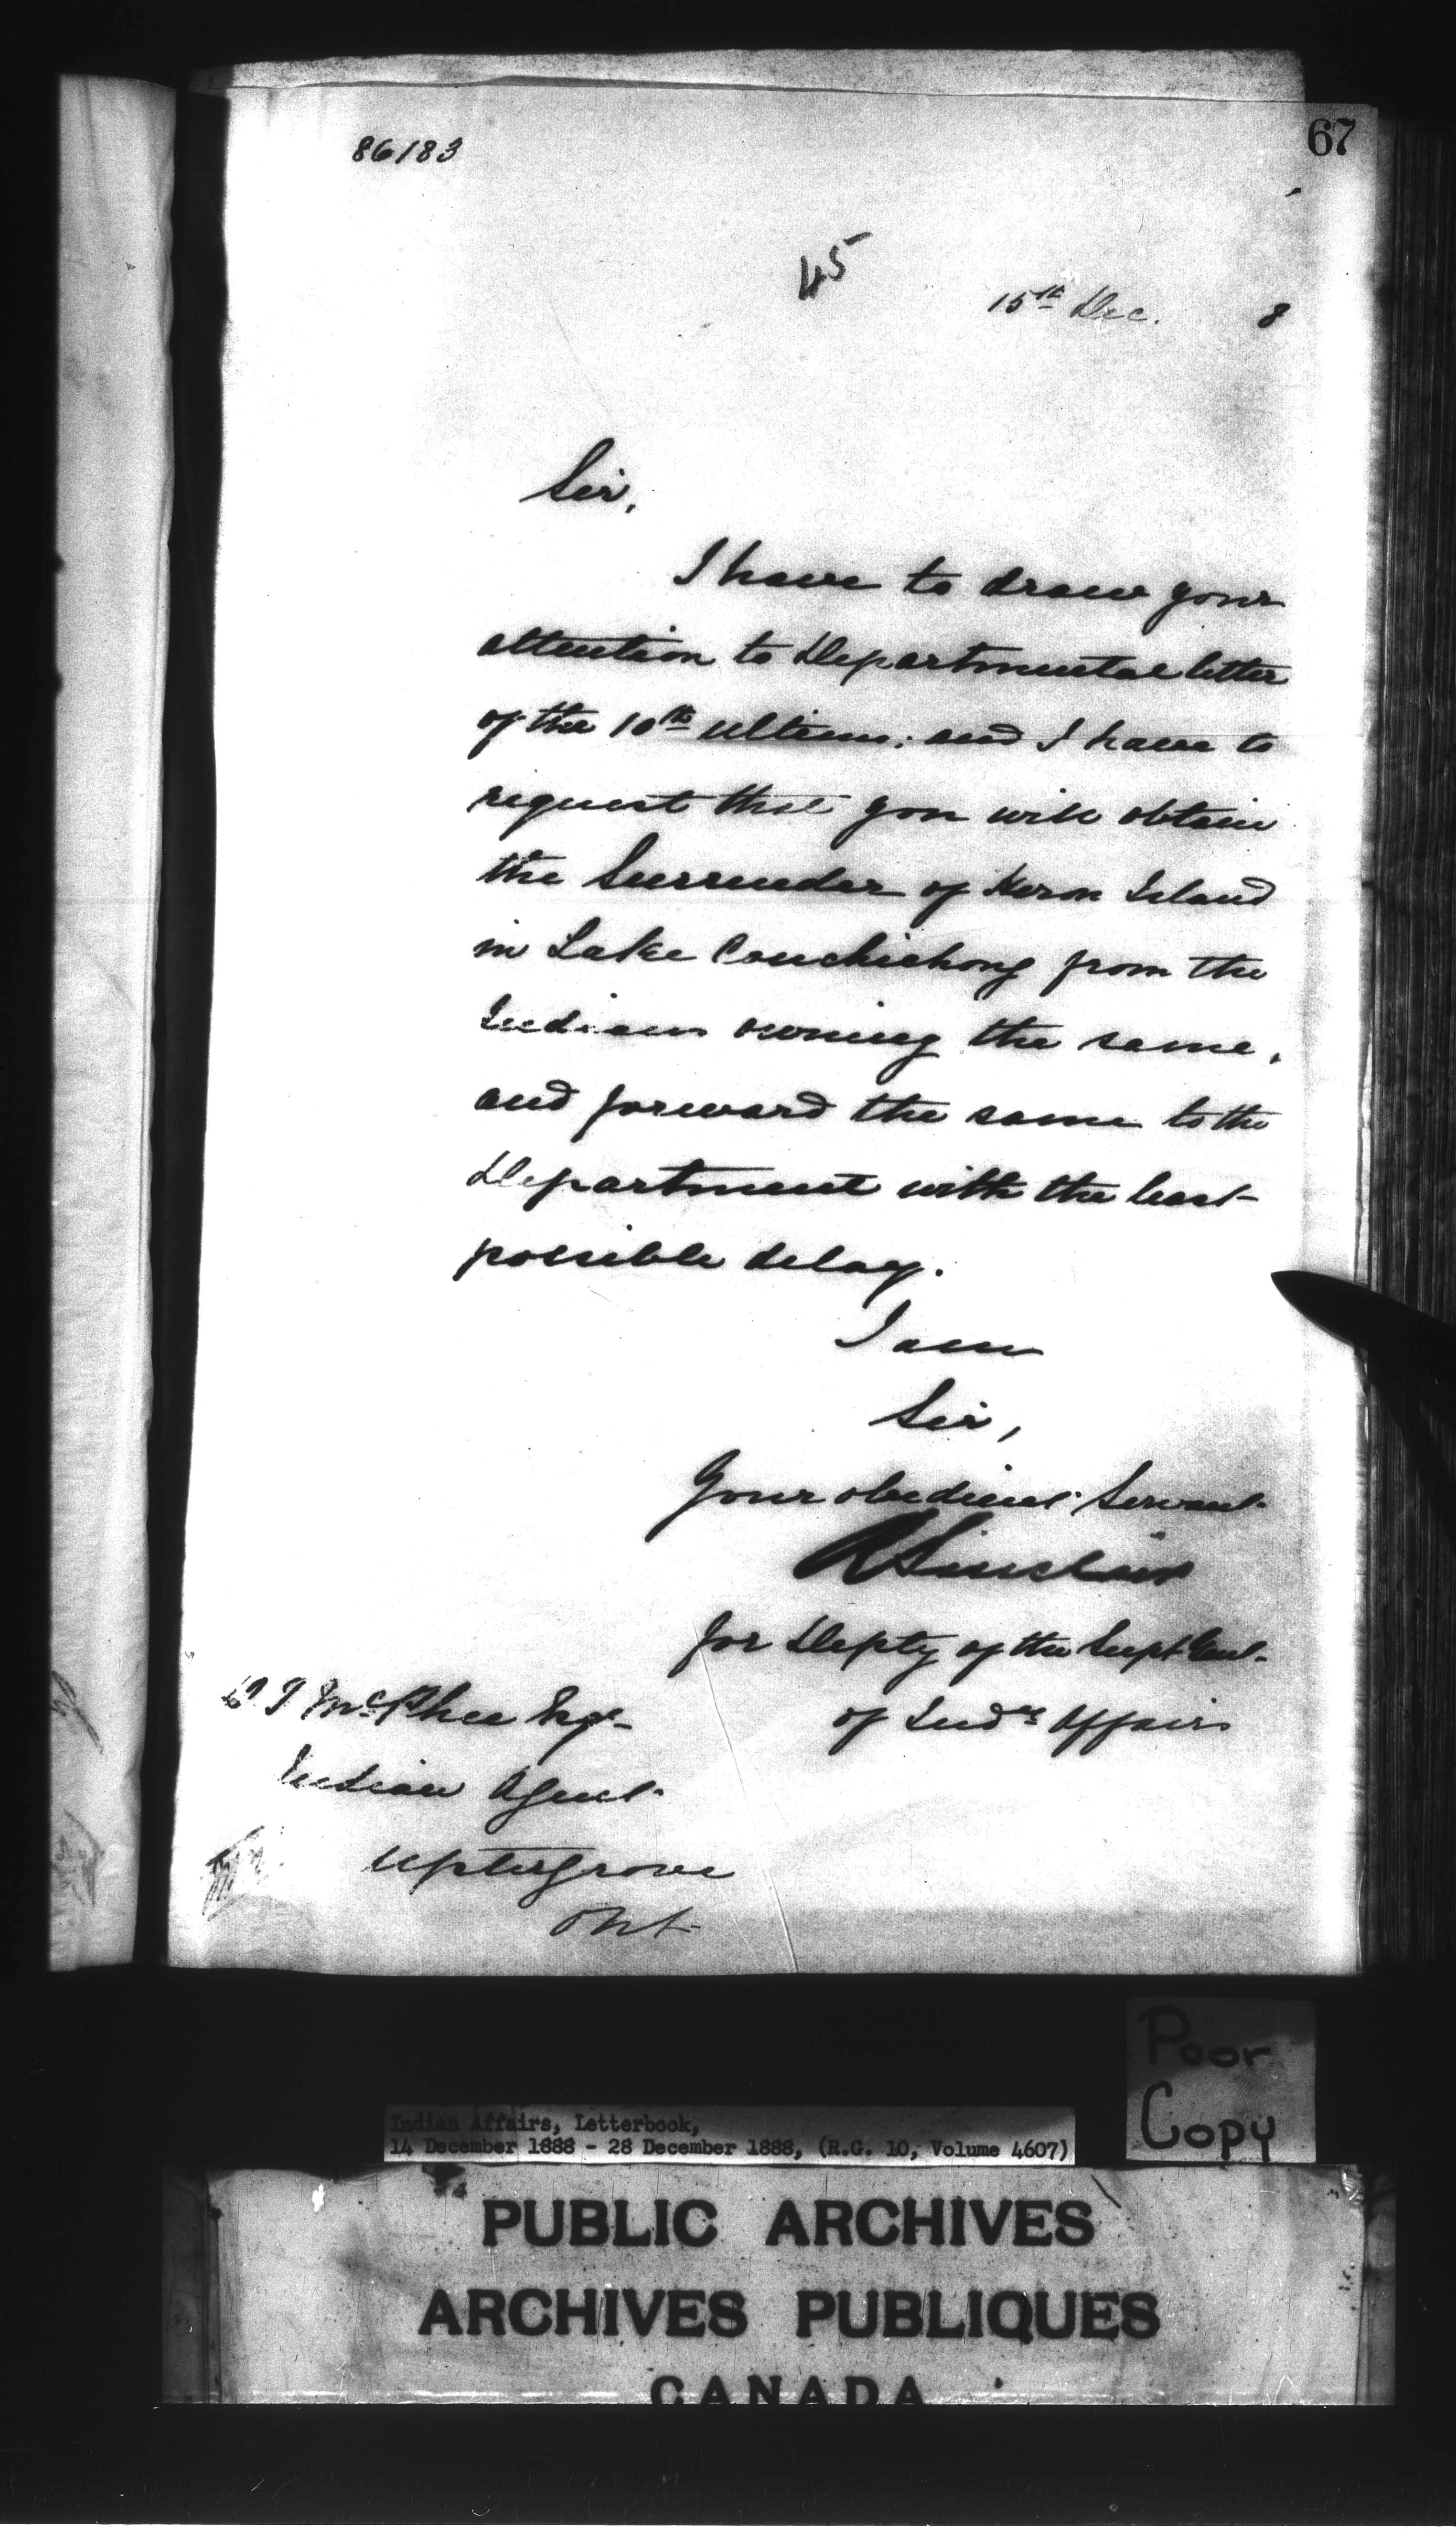 86183
67
45
15th Dec. 8
Sir,
I have to draw your
attention to Departmental letter
of the 10th ultimo; and I have to
request that you will obtain
the Surrender of Heron Island
in Lake Couchichong from the
Indians owning the same,
and forward the same to the
Department with the least
possible delay.
I am
Sir,
Your obedient Servant
R Sinclair
for Depty of the Supt Genl.
of Indn Affairs
D J McPhee Esqr
Indian Agent
Uptergrove
Ont
Poor
Copy
Indian Affairs, Letterbook,
14 December 1888 - 28 December 1888, (R.G. 10, Volume 4607)
PUBLIC ARCHIVES
ARCHIVES PUBLIQUES
CANADA